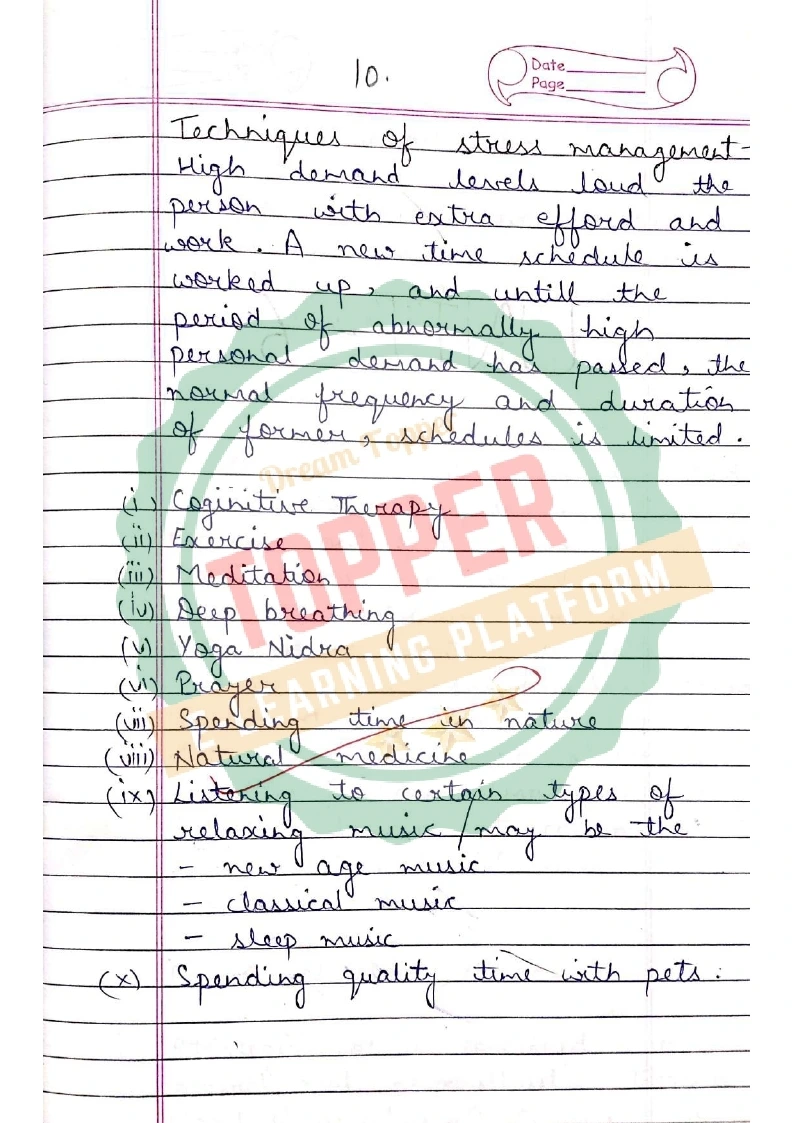 10.
Date
Page
Techniques of stress management-
High demand levels loud the
person with extra efford and
work. A new time schedule is
worked up, and untill the
period of abnormally high
personal demand has passed, the
normal frequency and duration
of former, schedules is limited.
Dream Topper
TOPPER
E LEARNING PLATFORM
(i) Coginitive Therapy
(ii) Exercise
(iii) Meditation
(iv) Deep breathing
(v) Yoga Nidra
(vi) Prayer
(vii) Spending time in nature
(viii) Natural medicine
(ix) Listening to certain types of
relaxing music / may be the
- new age music
- classical music
- sleep music
(x) Spending quality time with pets.